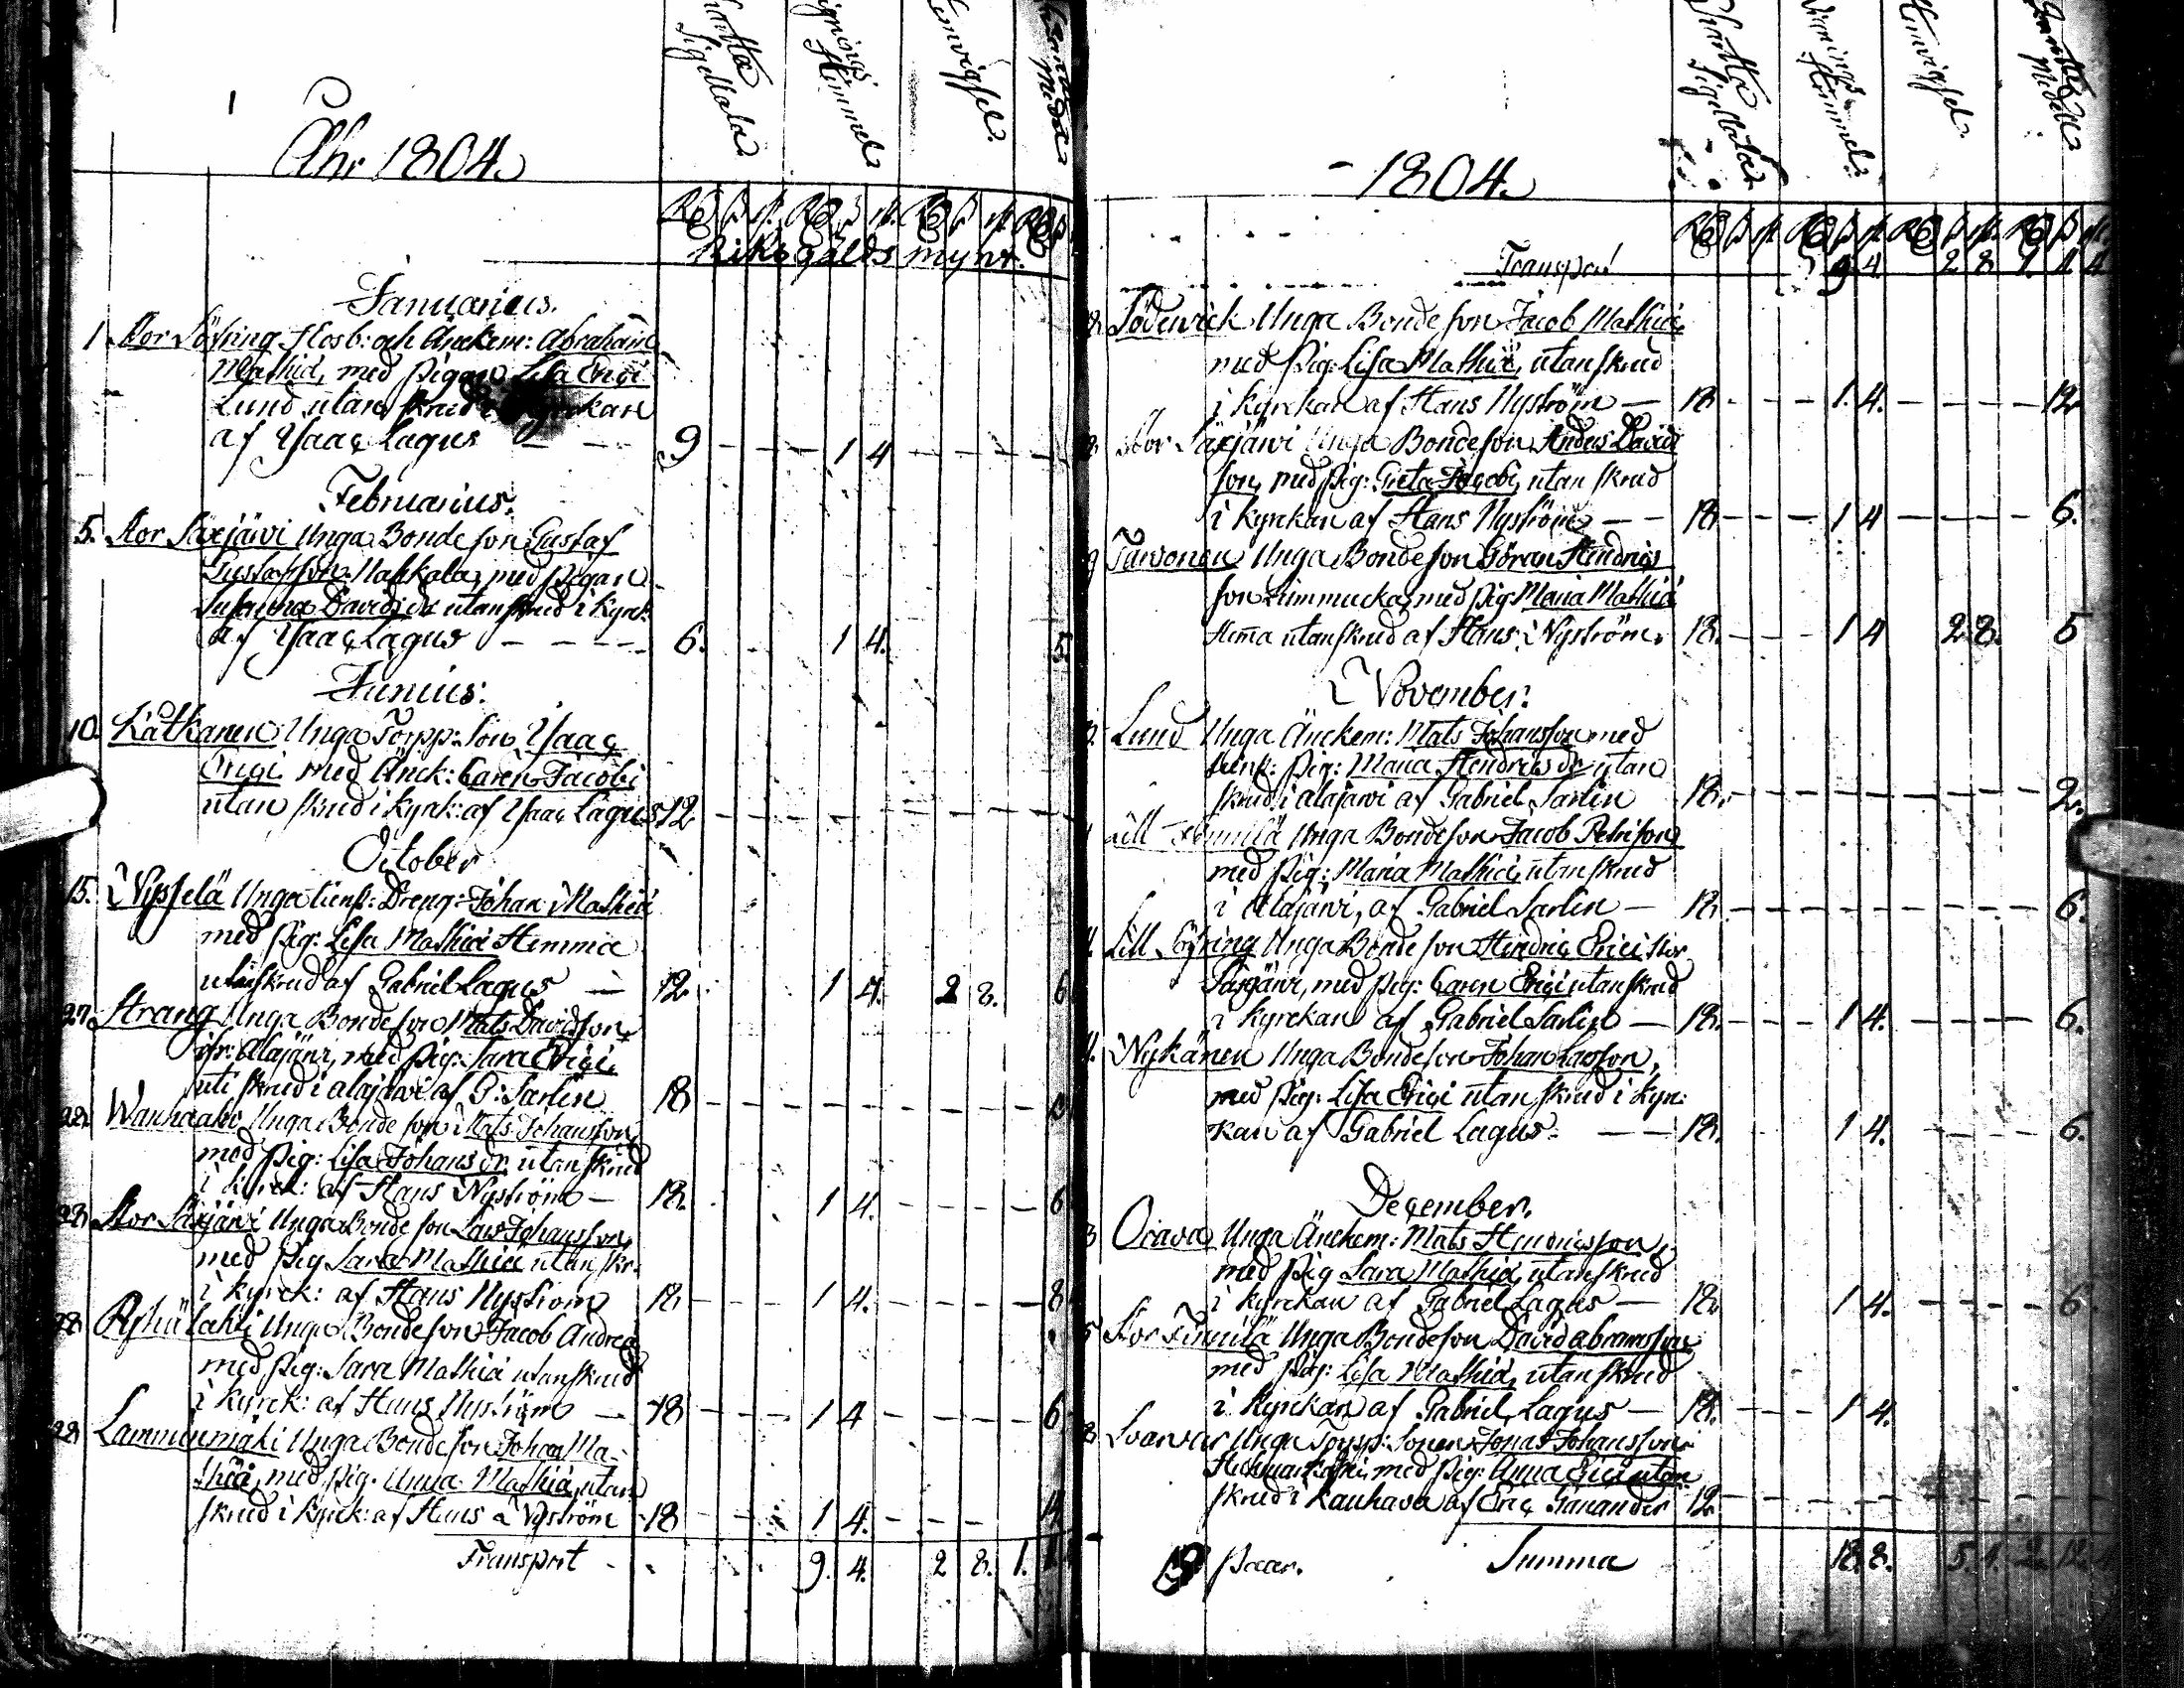 1
Åhr 1804.
Charta Sigillata
Wignings Stämmel
Hemvigsel.
Samlte Medel
Rd ß rst. Rd ß rst. Rd ß rst. Rd ß
Riksgälds mynt.
Januarius.
1. Stor Löfring Husb: och Änckem: Abraham
Mathiæ, med Pigan Lisa Erici
Lund utan skrud i Kyrckan
af Isaac Lagus — — 9 — — 1 4 — — —
Februarius.
5. Stor Säxjärvi Unga Bonde son Gustaf
Gustafsson med Pigan
Susanna Davidsdr utan skrud i Kyrck:
af Isaac Lagus — — — 6. 1 4. 5.
Junius.
10. Kätkänen Unga Torpp: Son Isaac
Erici med Änck: Caren Jacobi
utan skrud i Kyrk: af Isaac Lagus 12 — — —
October
15. Nisselä Unga tienst: Dreng: Johan Mathiæ
med Pig: Lisa Mathiæ Hemma
utan skrud af Gabriel Lagus — 12. 1 4. 2 8. 6
27. Strang Unga Bonde son Mats Davidsson
ifr: Alajärvi, med Pig: Sara Erici
uti skrud i Alajärvi af G: Sarlin 18 — — —
28. Wanhaaho Unga Bonde son Mats Johansson
med Pig: Lisa Johansdr, utan skrud
i Kyrck: af Hans Nyström — 18. 1 4. — — — 6
28. Stor Säxjärvi Unga Bonde son Lars Johansson
med Pig Sara Mathiæ utan skr:
i Kyrck: af Hans Nyström 18 — — 1 4. — — — 8
28. Unga Bonde son Jacob Andreæ
med Pig: Sara Mathiæ utan skrud
i Kyrck: af Hans Nyström — 18 — — 1 4 — — — 6
28. Lamminmäki Unga Bonde son Johan Ma-
thiæ, med Pig: Anna Mathiæ, utan
skrud i Kyrck: af Hans Nyström 18 — — 1 4. — — — 4
Transport 9. 4. 2 8. 1. 1
- 1804.
Charta Sigillata
Wignings Stämmel.
Hemvigsel.
Samlte Medel
Rd ß rst. Rd ß rst. Rd ß rst. Rd ß rst.
Transport 9 4. 2 8. 1. 1 4
Söderwick Unga Bonde son Jacob Mathiæ,
med Pig: Lisa Mathiæ, utan skrud
i Kyrckan af Hans Nyström — 18 — — — 1. 4. — — — — 12
Stor Säxjärvi Unga Bonde son Anders Davids
son, med Pig: Greta Jacobi, utan skrud
i Kyrckan af Hans Nyström — — 18 — — — 1 4 — — — — 6.
Tarvonen Unga Bonde son Göran Hindrics
son Lummucka, med Pig: Maria Mathiæ
Hemma utan skrud af Hans Nyström. 18. — — 1 4 2 8. 5
November.
Lund Unga Änckem: Mats Johansson med
tienst: Pig: Maria Hendricsdr utan
skrud i Alajärvi af Gabriel Sarlin 18. — — — 2.
Lill Finnilä Unga Bonde son Jacob Petrisson
med Pig: Maria Mathiæ, utan skrud
i Alajärvi, af Gabriel Sarlin — 18. — — — 6.
Lill Löfring Unga Bonde son Hendric Erici Stor
Säxjärvi, med Pig: Caren Erici utan skrud
i Kyrckan af Gabriel Sarlin — 18. — — — 1 4. — — — 6.
Nykänen Unga Bonde son Johan Larsson,
med Pig: Lisa Erici utan skrud i Kyr:
kan af Gabriel Lagus — — 18. 1 4. — — — 6.
December.
Oravа Unga Änckem: Mats Hendricsson,
med Pig Sara Mathiæ, utan skrud
i Kyrckan af Gabriel Lagus — 18. 1 4. — — — 6
Stor Finnilä Unga Bonde son David Abramsson
med Pig: Lisa Mathiæ, utan skrud
i Kyrckan af Gabriel Lagus — 18. — — 1 4.
Unga Torpp: Sonen Jonas Johansson
med Pig: Anna Erici utan
skrud i Kauhava af Eric Ganander 12. — — —
19 Paar. Summa 18. 8. 5. 4. 2 12.